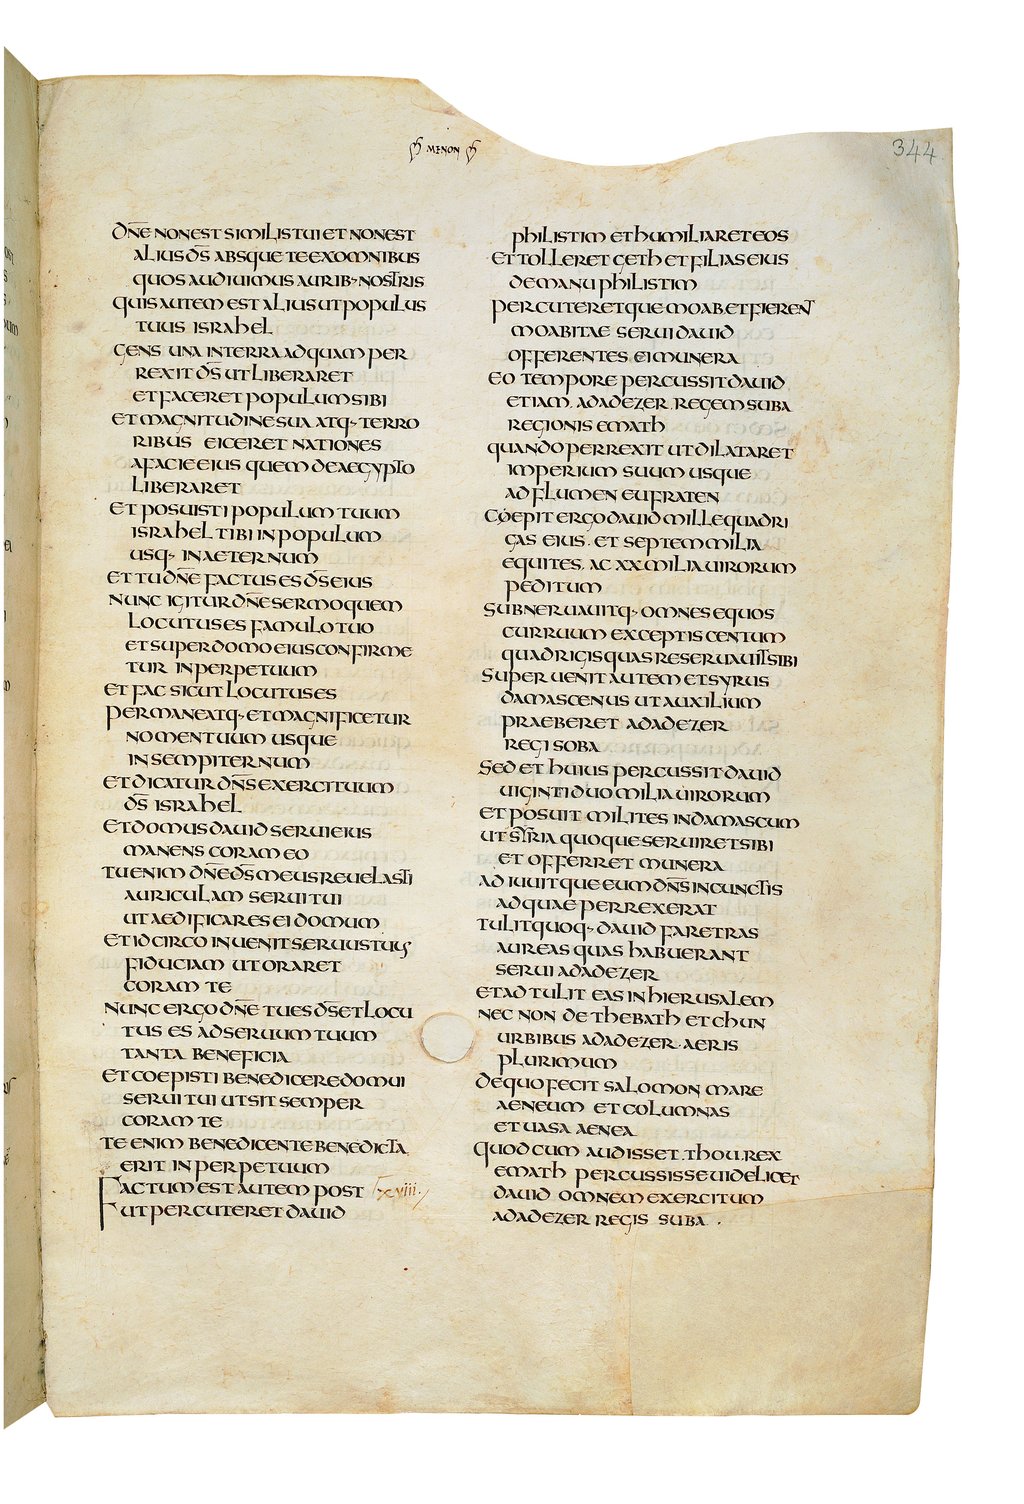 MENON
344
DN̄E NON EST SIMILIS TUI ET NON EST
ALIUS D̄S ABSQUE TE EX OMNIBUS
QUOS AUDIUIMUS AURIB· NOSTRIS
QUIS AUTEM EST ALIUS UT POPULUS
TUUS ISRAHEL
GENS UNA IN TERRA AD QUAM PER
REXIT D̄S UT LIBERARET
ET FACERET POPULUM SIBI
ET MAGNITUDINE SUA ATQ· TERRO
RIBUS EICERET NATIONES
A FACIE EIUS QUEM DE AEGYPTO
LIBERARET
ET POSUISTI POPULUM TUUM
ISRAHEL TIBI IN POPULUM
USQ· IN AETERNUM
ET TU DN̄E FACTUS ES D̄S EIUS
NUNC IGITUR DN̄E SERMO QUEM
LOCUTUS ES FAMULO TUO
ET SUPER DOMO EIUS CONFIRME
TUR IN PERPETUUM
ET FAC SICUT LOCUTUS ES
PERMANEATQ· ET MAGNIFICETUR
NOMEN TUUM USQUE
IN SEMPITERNUM
ET DICATUR DN̄S EXERCITUUM
D̄S ISRAHEL
ET DOMUS DAUID SERUI EIUS
MANENS CORAM EO
TU ENIM DN̄E D̄S MEUS REUELASTI
AURICULAM SERUI TUI
UT AEDIFICARES EI DOMUM
ET IDCIRCO INUENIT SERUUS TUUS
FIDUCIAM UT ORARET
CORAM TE
NUNC ERGO DN̄E TU ES D̄S ET LOCU
TUS ES AD SERUUM TUUM
TANTA BENEFICIA
ET COEPISTI BENEDICERE DOMUI
SERUI TUI UT SIT SEMPER
CORAM TE
TE ENIM BENEDICENTE BENEDICTA
ERIT IN PERPETUUM
FACTUM EST AUTEM POST xviii.
UT PERCUTERET DAUID
PHILISTIM ET HUMILIARET EOS
ET TOLLERET GETH ET FILIAS EIUS
DE MANU PHILISTIM
PERCUTERETQUE MOAB. ET FIERENT
MOABITAE SERUI DAUID
OFFERENTES EI MUNERA
EO TEMPORE PERCUSSIT DAUID
ETIAM. ADADEZER. REGEM SUBA
REGIONIS EMATH
QUANDO PERREXIT UT DILATARET
IMPERIUM SUUM USQUE
AD FLUMEN EUFRATEN
COEPIT ERGO DAUID MILLE QUADRI
GAS EIUS. ET SEPTEM MILIA
EQUITES. AC XX MILIA UIRORUM
PEDITUM
SUBNERUAUITQ· OMNES EQUOS
CURRUUM EXCEPTIS CENTUM
QUADRIGIS QUAS RESERUAUIT SIBI
SUPERUENIT AUTEM ET SYRUS
DAMASCENUS UT AUXILIUM
PRAEBERET ADADEZER
REGI SOBA
SED ET HUIUS PERCUSSIT DAUID
UIGINTI DUO MILIA UIRORUM
ET POSUIT MILITES IN DAMASCUM
UT SYRIA QUOQUE SERUIRET SIBI
ET OFFERRET MUNERA
ADIUUITQUE EUM DN̄S IN CUNCTIS
AD QUAE PERREXERAT
TULIT QUOQ· DAUID FARETRAS
AUREAS QUAS HABUERANT
SERUI ADADEZER
ET ADTULIT EAS IN HIERUSALEM
NEC NON DE THEBATH ET CHUN
URBIBUS ADADEZER. AERIS
PLURIMUM
DE QUO FECIT SALOMON MARE
AENEUM ET COLUMNAS
ET UASA AENEA
QUOD CUM AUDISSET. THOU. REX
EMATH PERCUSSISSE UIDELICET
DAUID OMNEM EXERCITUM
ADADEZER REGIS SUBA .